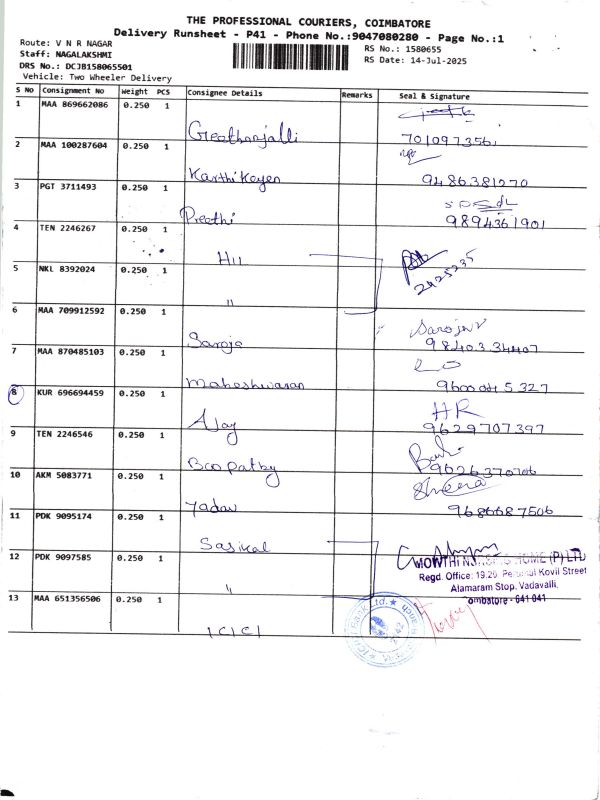 THE PROFESSIONAL COURIERS, COIMBATORE
Delivery Runsheet - P41 - Phone No.:9047080280 - Page No.:1
Route: V N R NAGAR
Staff: NAGALAKSHMI
DRS No.: DCJB158065501
Vehicle: Two Wheeler Delivery
RS No.: 1580655
RS Date: 14-Jul-2025
S No Consignment No Weight PCS Consignee Details Remarks Seal & Signature
1 MAA 869662086 0.250 1
Geethanjalli 701097356
2 MAA 100287604 0.250 1
Karthikayen 9486381270
3 PGT 3711493 0.250 1
Preethi 9894361901
4 TEN 2246267 0.250 1
HII 2425235
5 NKL 8392024 0.250 1
"
6 MAA 709912592 0.250 1
Saroja 9840334407
7 MAA 870485103 0.250 1
Maheshwaran 9600045327
8 KUR 696694459 0.250 1 HR
Ajay 9629707397
9 TEN 2246546 0.250 1
Boopathy 9626370706
10 AKM 5083771 0.250 1 Sheena
Yadav 9686687506
11 PDK 9095174 0.250 1
Sasikal
12 PDK 9097585 0.250 1
"
HOME (P) LTD
Regd. Office: 19,20, Perumal Kovil Street
Alamaram Stop, Vadavalli,
ombatore - 641 041
13 MAA 651356506 0.250 1
ICICI
Bank Ltd.